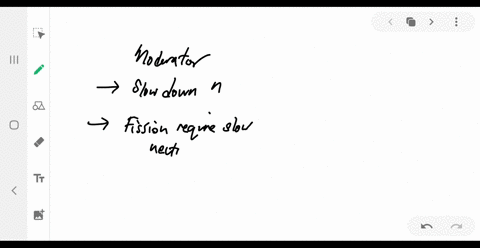 Moderator
→ Slow down n
→ Fission require slow
neut
Tт